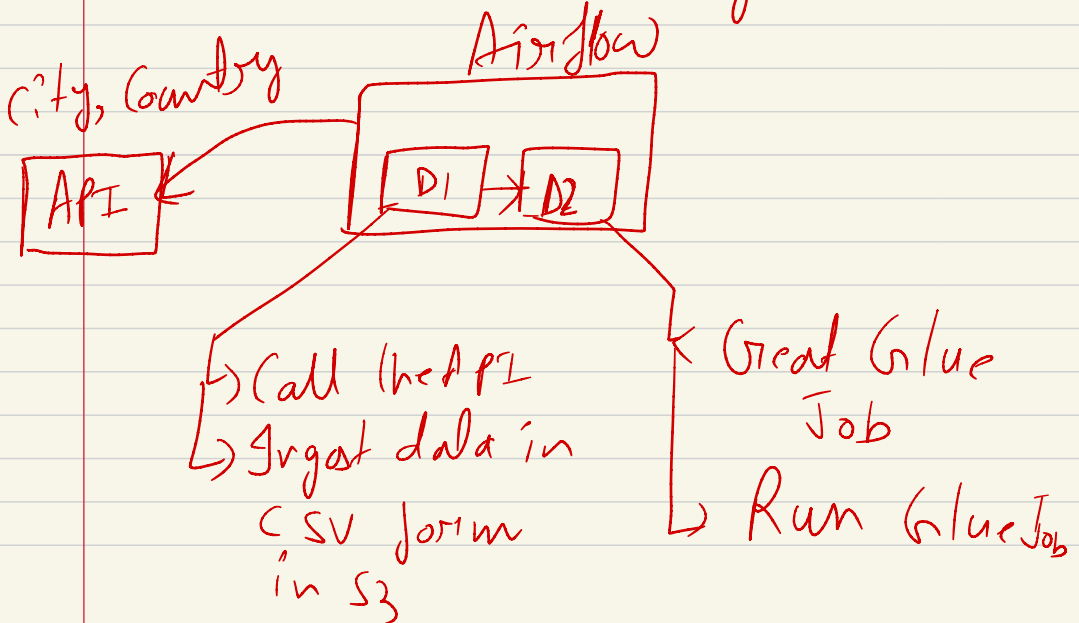 Airflow
City, Country
API
D1
D2
Call the API
Ingest data in
CSV form
in S3
Creat Glue
Job
Run Glue Job